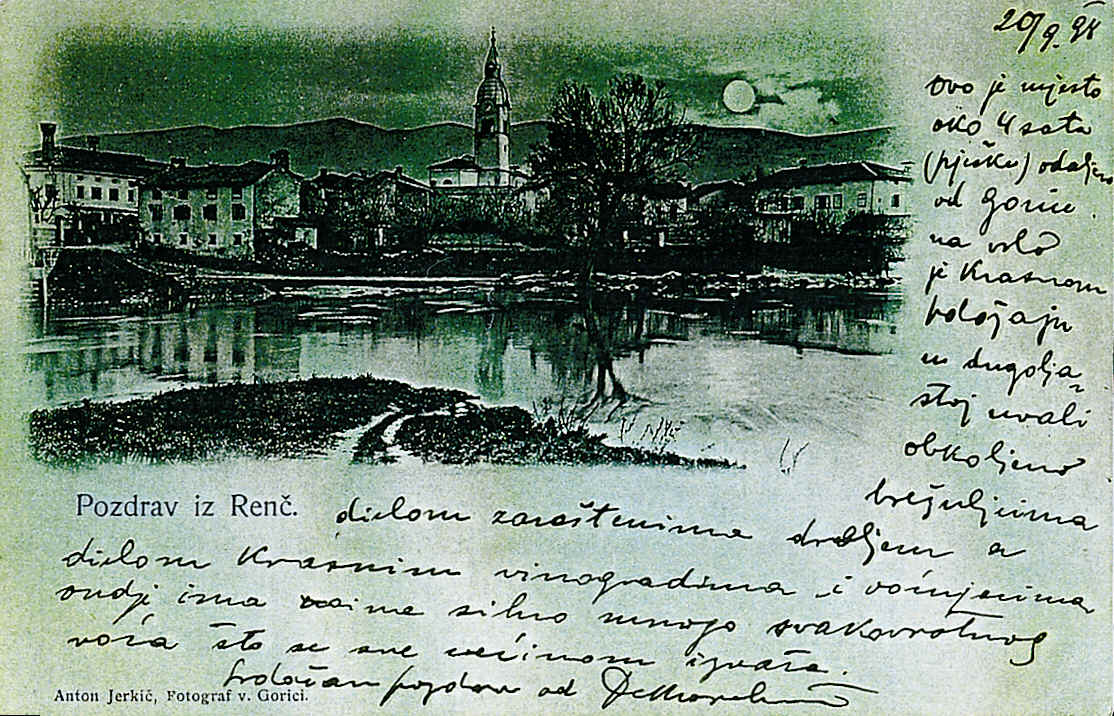 20/9. 98
ovo je mjesto
oko 4 sata
(pješke) odaljeno
od Gorice.
na vrlo
je krasnom
položaju
u dugolja-
stoj uvali
obkoljeno
brežuljcima
Pozdrav iz Renč.
dielom zaraštenima drvljem a
dielom krasnim vinogradima i voćnjacima
ondje ima naime silno mnogo svakovrstnog
voća što se sve većinom izvaža.
Srdačan pozdrav od
Anton Jerkič, Fotograf v. Gorici.